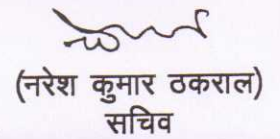 (नरेश कुमार ठकराल)
सचिव